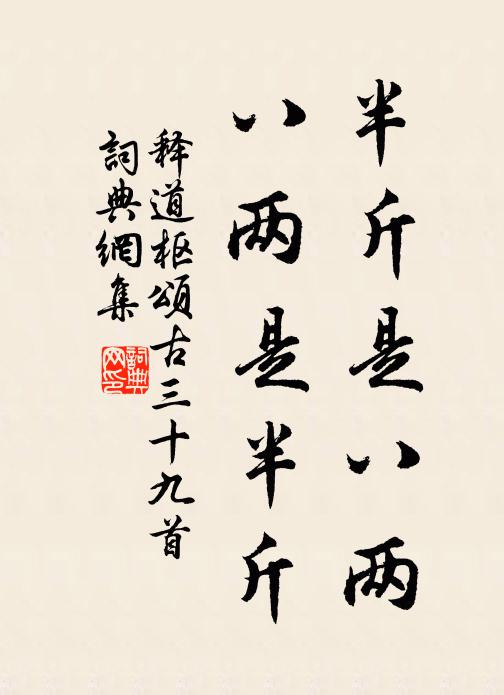 半斤是八两
八两是半斤
释道枢颂古三十九首
词典網集
詞典网印